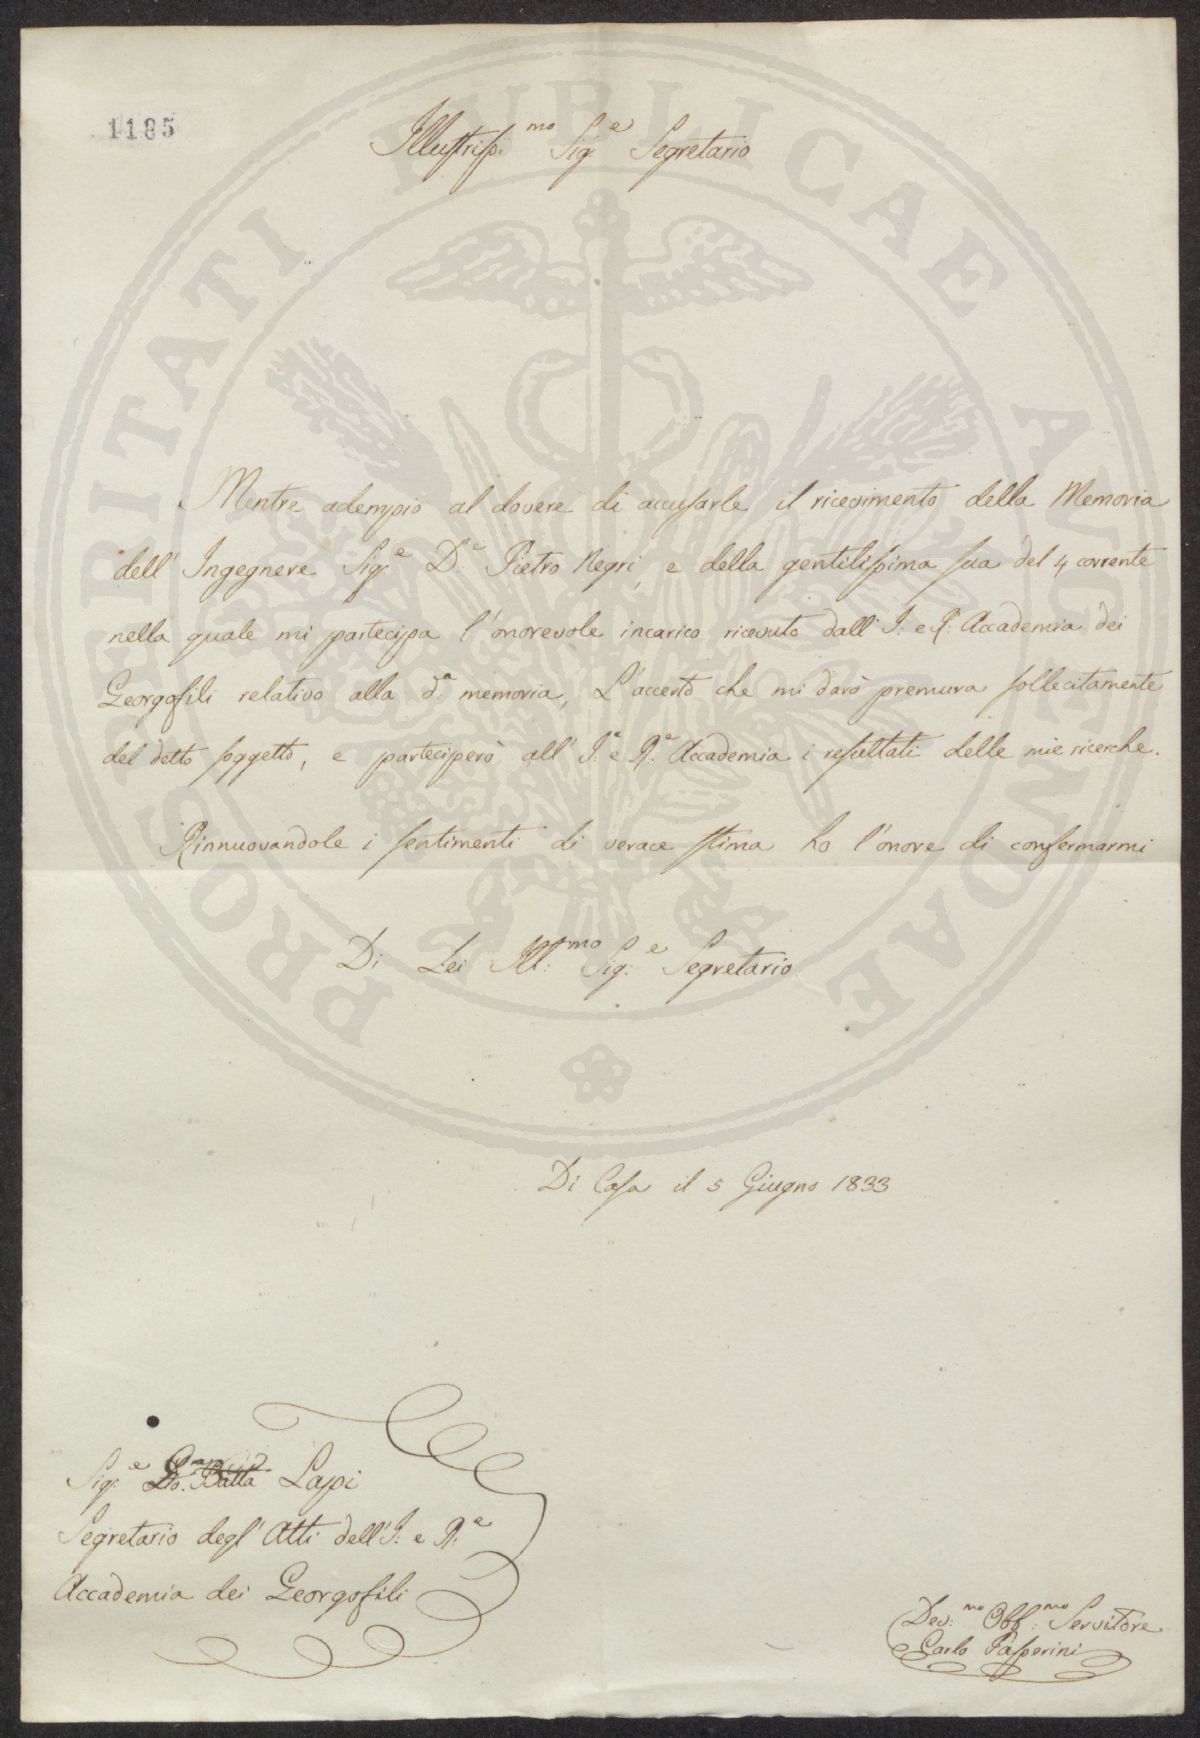 1185
Illustriss.mo Sig.e Segretario
Mentre adempio al dovere di accusarle il ricevimento della Memoria
dell' Ingegnere Sig.e D.e Pietro Negri, e della gentilissima sua del 4 corrente
nella quale mi partecipa l'onorevole incarico ricevuto dall' I: e R: Accademia dei
Georgofili relativo alla d.a memoria, L'accerto che mi darò premura sollecitamente
del detto soggetto, e parteciperò all' I.e e R.e Accademia i resultati delle mie ricerche.
Rinnuovandole i sentimenti di verace stima ho l'onore di confermarmi
Di Lei Ill:mo Sig:e Segretario
Di Casa il 5 Giugno 1833
Sig.e Batta Lapi
Segretario degl' Atti dell' I: e R.e
Accademia dei Georgofili
Dev:mo Obb:mo Servitore
Carlo Passerini
PROSPERITATI PUBLICAE AUGENDAE